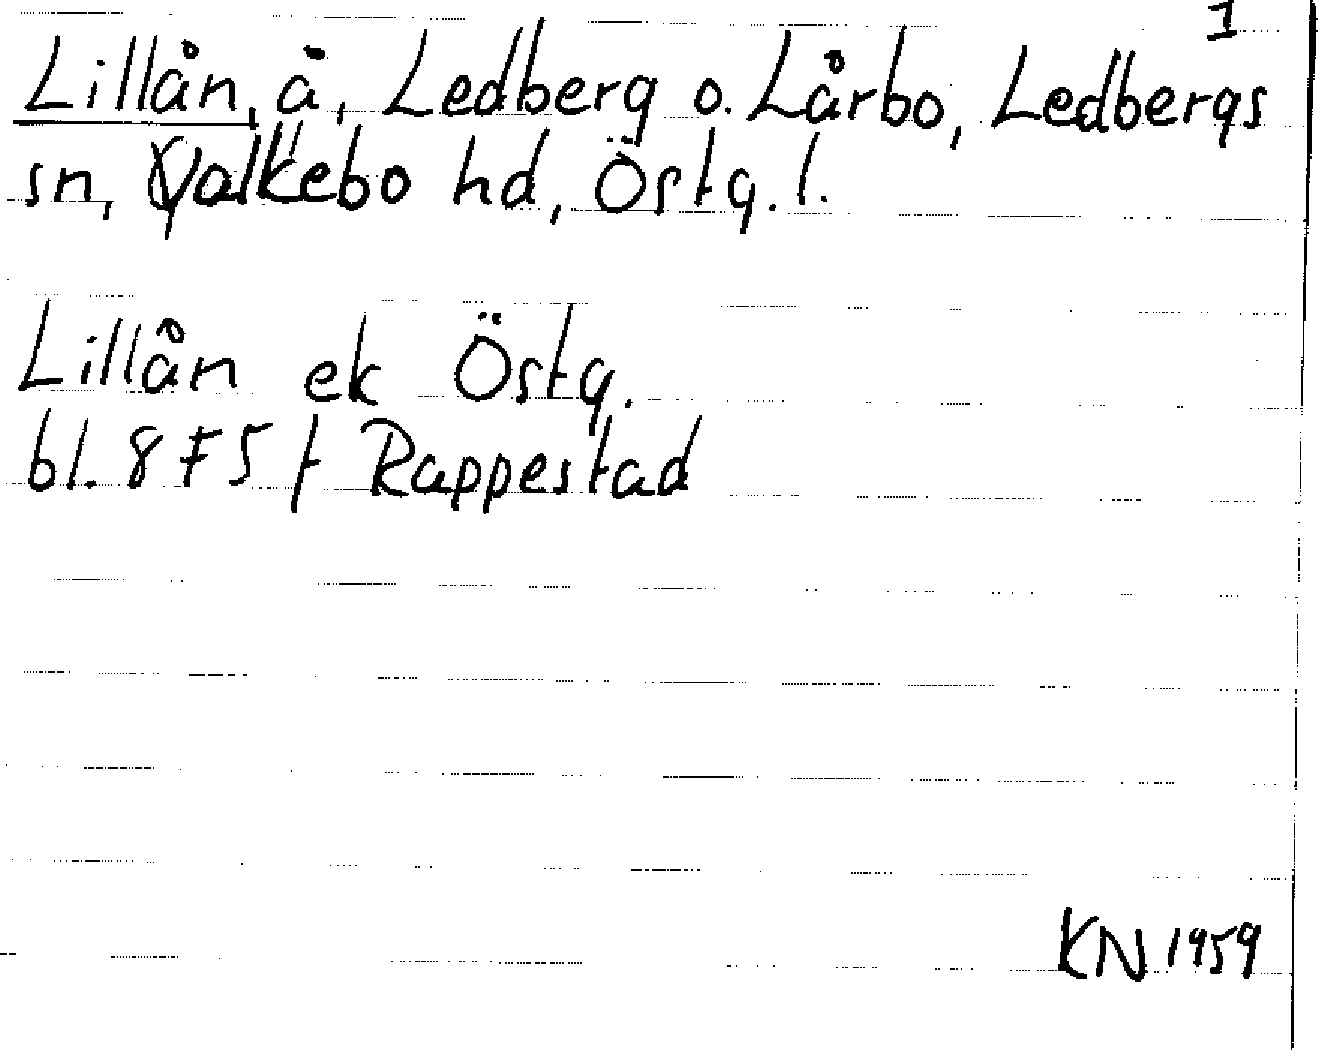 1
Lillån, å, Ledberg o. Lårbo, Ledbergs
sn, Valkebo hd, Östg. l.
Lillån ek Östg.
bl. 875 f Rappestad
KN 1959